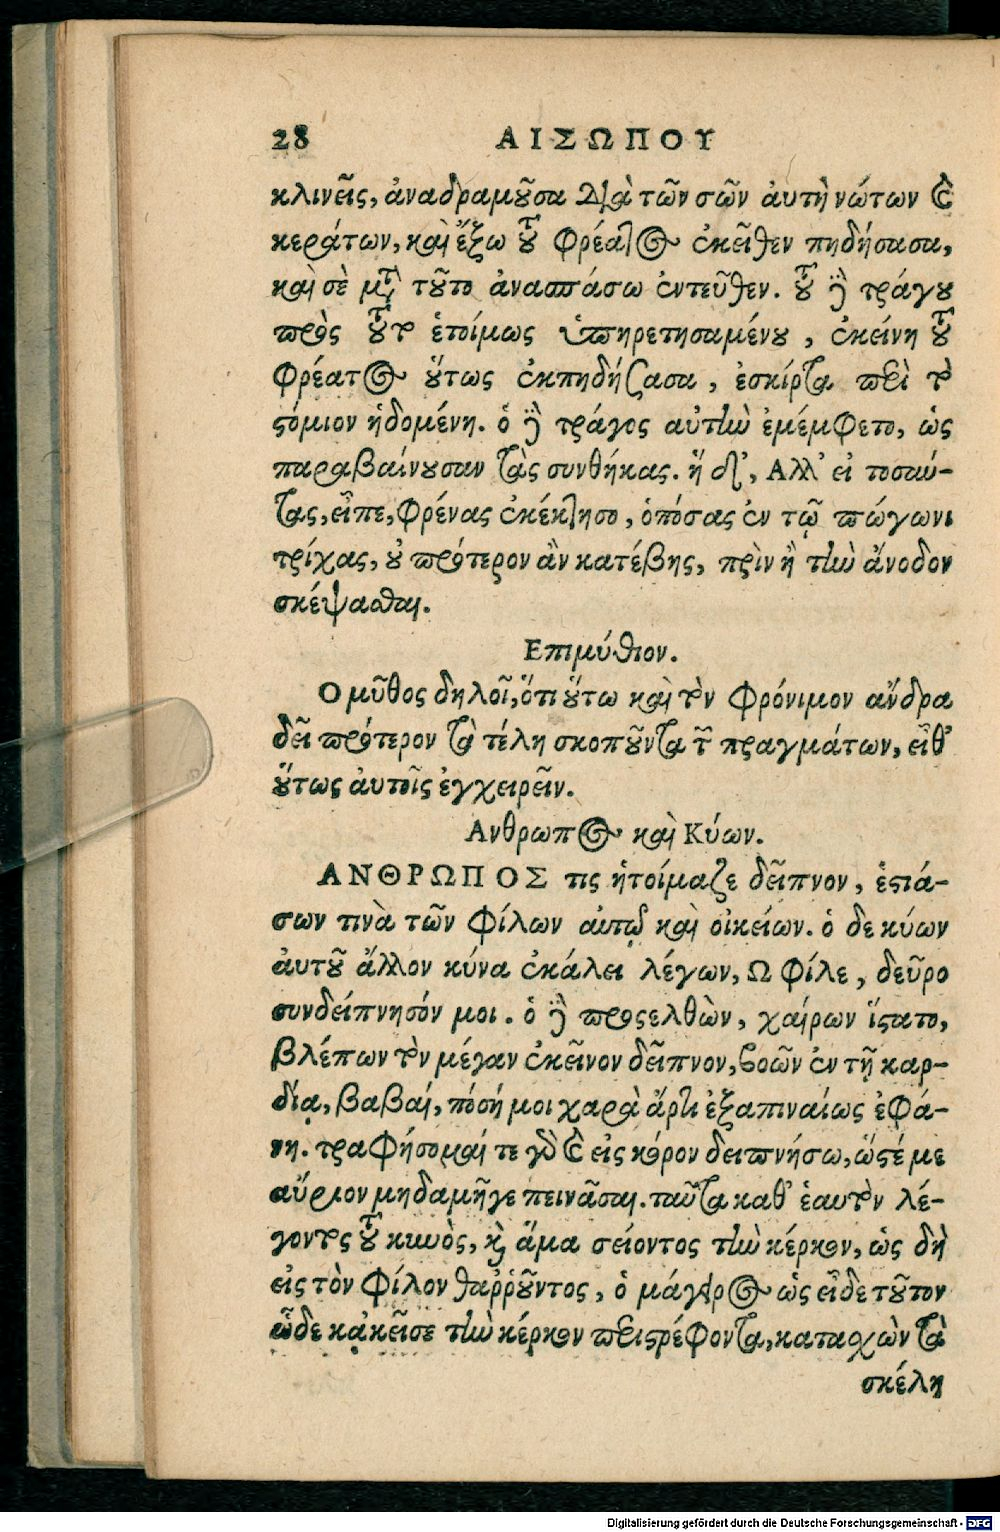 28 ΑΙΣΩΠΟΥ
κλινεῖς, ἀναδραμοῦσα διὰ τῶν σῶν ἀυτὴ νώτων καὶ
κεράτων, καὶ ἔξω τοῦ φρέατος ἐκεῖθεν πηδήσασα,
καὶ σὲ μετὰ τοῦτο ἀνασπάσω ἐντεῦθεν. τοῦ δὲ τράγου
πρὸς τοῦτο ἑτοίμως ὑπηρετησαμένου, ἐκείνη τοῦ
φρέατος οὕτως ἐκπηδήσασα, ἐσκίρτα περὶ τὸ
στόμιον ἡδομένη. ὁ δὲ τράγος αὐτὴν ἐμέμφετο, ὡς
παραβαίνουσαν τὰς συνθήκας. ἡ δ᾽, Αλλ᾽ εἰ τοσαύ-
τας, εἶπε, φρένας ἐκέκτησο, ὁπόσας ἐν τῷ πώγωνι
τρίχας, οὐ πρότερον ἂν κατέβης, πρὶν ἢ τὴν ἄνοδον
σκέψασθαι.
Επιμύθιον.
Ο μῦθος δηλοῖ, ὅτι οὕτω καὶ τὸν φρόνιμον ἄνδρα
δεῖ πρότερον τὰ τέλη σκοποῦντα τῶν πραγμάτων, εἶθ᾽
οὕτως ἀυτοῖς ἐγχειρεῖν.
Ανθρωπος καὶ Κύων.
ΑΝΘΡΩΠΟΣ τις ἡτοίμαζε δεῖπνον, ἑστιά-
σων τινὰ τῶν φίλων αὐτῷ καὶ οἰκείων. ὁ δε κύων
ἀυτοῦ ἄλλον κύνα ἐκάλει λέγων, Ω φίλε, δεῦρο
συνδείπνησόν μοι. ὁ δὲ προσελθὼν, χαίρων ἵστατο,
βλέπων τὸν μέγαν ἐκεῖνον δεῖπνον, βοῶν ἐν τῇ καρ-
δίᾳ, βαβαί, πόση μοι χαρὰ ἄρτι ἐξαπιναίως ἐφά-
νη. τραφήσομαί τε γὰρ καὶ εἰς κόρον δειπνήσω, ὥστέ με
αὔριον μηδαμῆγε πεινᾶσαι. ταῦτα καθ᾽ ἑαυτὸν λέ-
γοντος τοῦ κυνὸς, καὶ ἅμα σείοντος τὴν κέρκον, ὡς δὴ
εἰς τὸν φίλον θαῤῥοῦντος, ὁ μάγειρος ὡς εἶδε τοῦτον
ὧδε κᾀκεῖσε τὴν κέρκον περιστρέφοντα, κατασχὼν τὰ
σκέλη
Digitalisierung gefördert durch die Deutsche Forschungsgemeinschaft - DFG